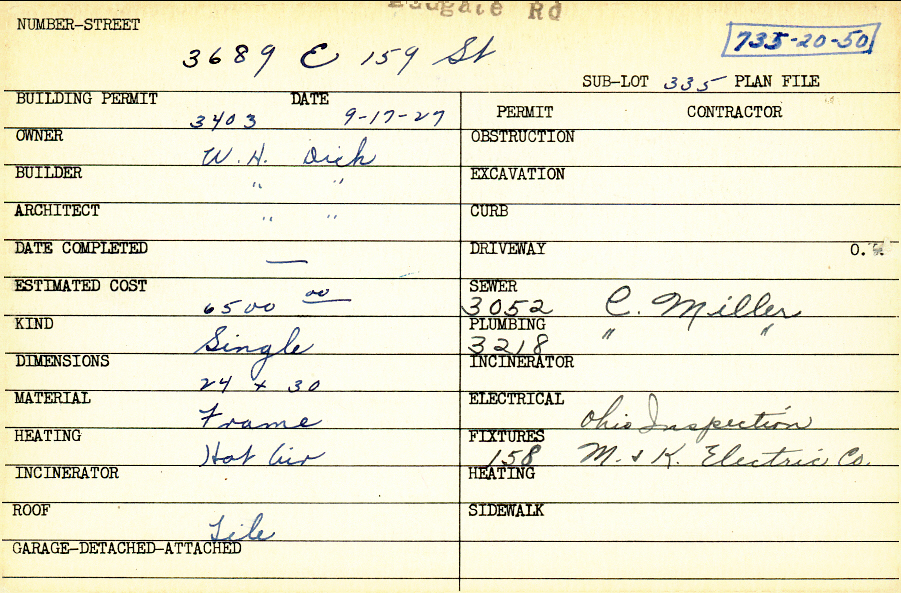 Rd
NUMBER-STREET
3689 E 159 St
735-20-50
SUB-LOT 335 PLAN FILE
BUILDING PERMIT DATE
3403 9-17-27
PERMIT CONTRACTOR
OWNER
W. H. Dick
OBSTRUCTION
BUILDER
" "
EXCAVATION
ARCHITECT
" "
CURB
DATE COMPLETED
—
DRIVEWAY 0.
ESTIMATED COST
6500 00
SEWER
3052 C. Miller
KIND
Single
PLUMBING
3218 " "
DIMENSIONS
24 x 30
INCINERATOR
MATERIAL
Frame
ELECTRICAL
Ohio Inspection
HEATING
Hot Air
FIXTURES
158 M. & K. Electric Co.
INCINERATOR
HEATING
ROOF
Tile
SIDEWALK
GARAGE-DETACHED-ATTACHED